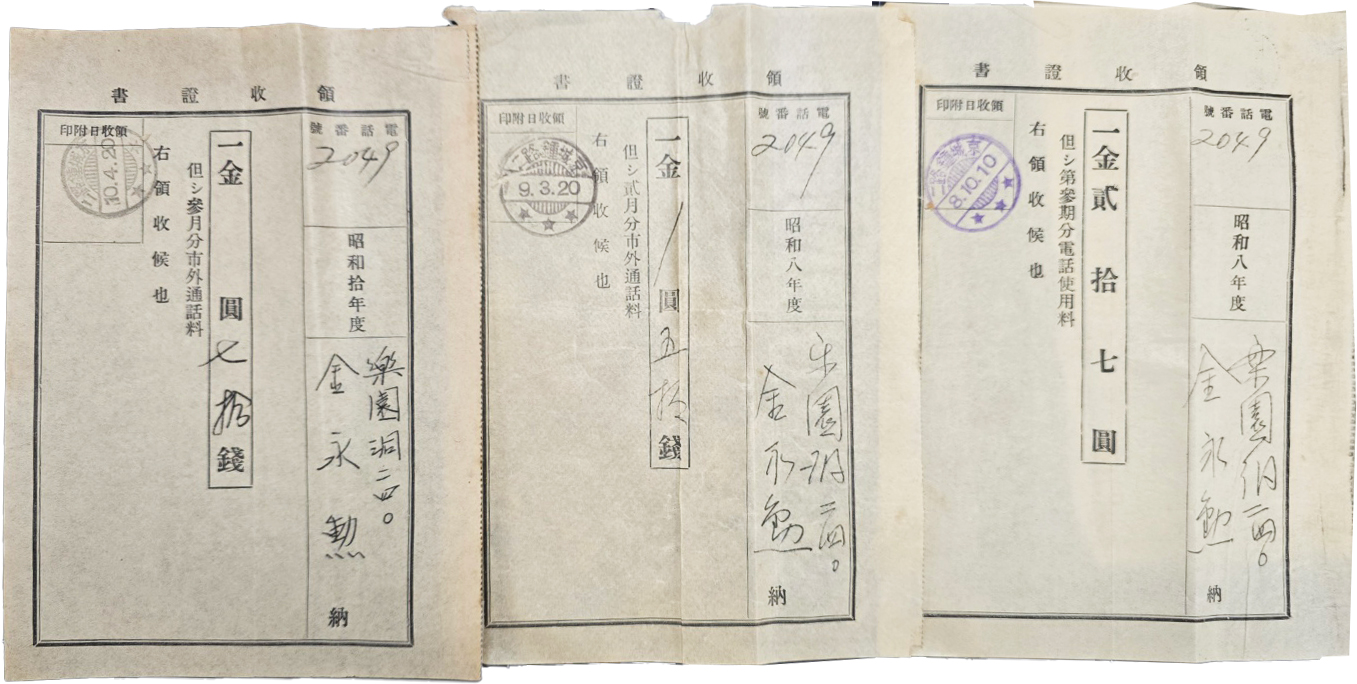 領收證書
電話番號
2049
昭和八年度
楽園洞二四〇
金永勳
納
一金貳拾七圓
但シ第參期分電話使用料
右領收候也
領收日附印
京城鍾路二
8.10.10
領收證書
電話番號
2049
昭和八年度
楽園洞二四〇
金永勳
納
一金1圓五拾錢
但シ貳月分市外通話料
右領收候也
領收日附印
京城鍾路二
9.3.20
領收證書
電話番號
2049
昭和拾年度
樂園洞二四〇
金永勳
納
一金圓七拾錢
但シ參月分市外通話料
右領收候也
領收日附印
10.4.20